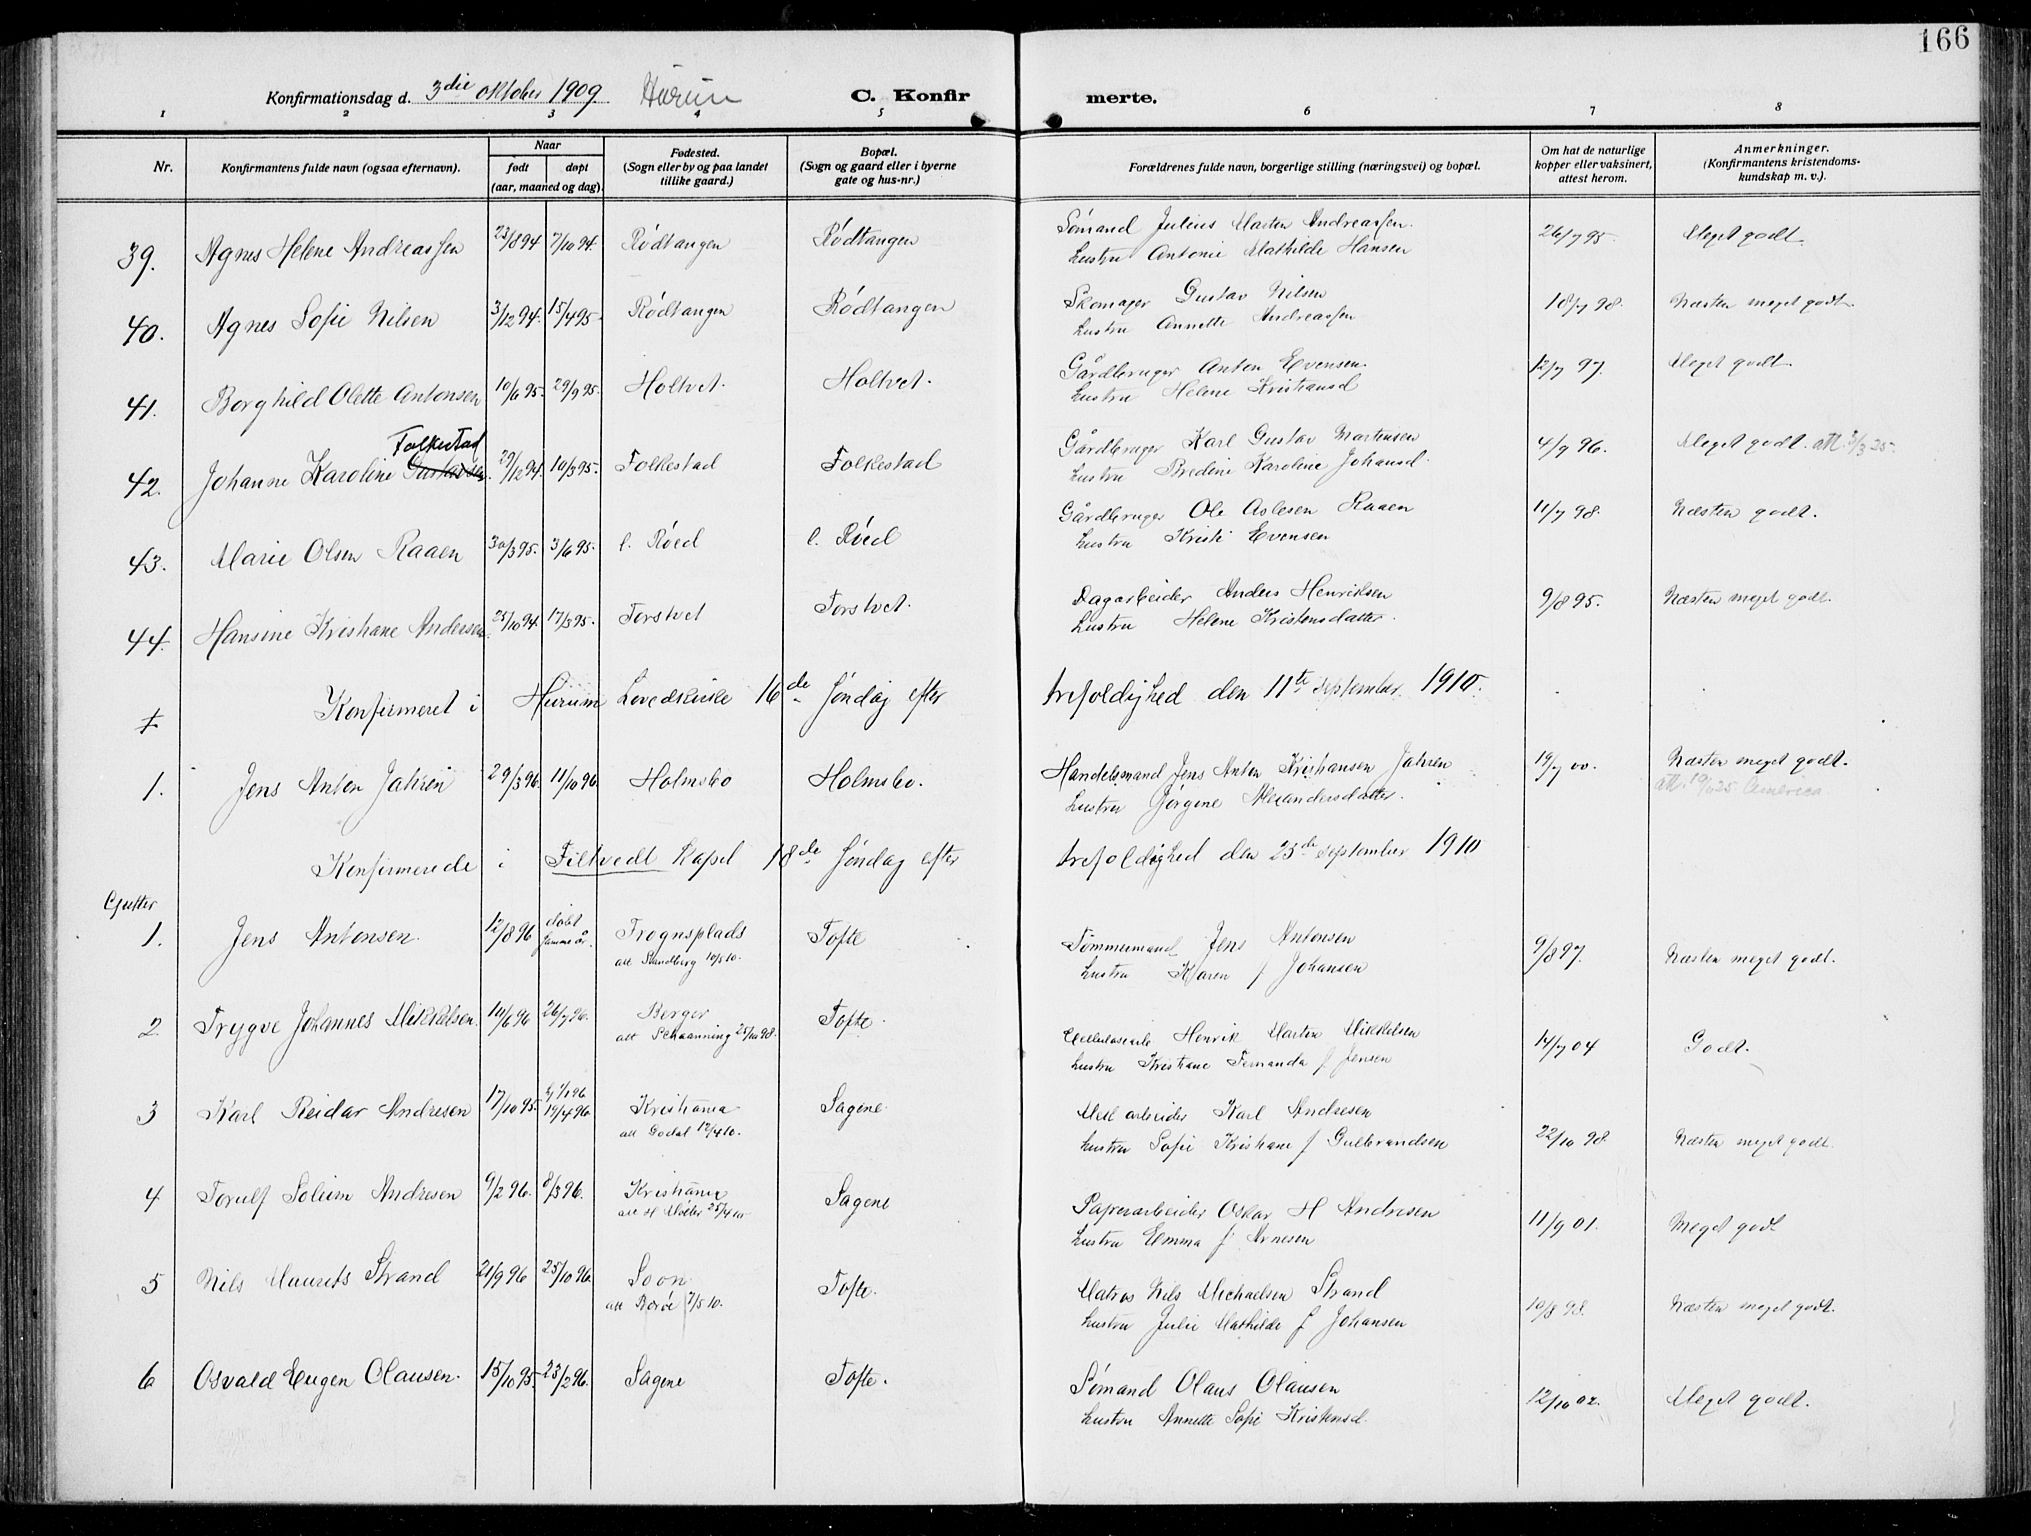 166
Konfirmationsdag d. 3die oktober 1909. Hurum C. Konfirmerte.
1 2 3 4 5 6 7 8
Nr. Konfirmantens fulde navn (ogsaa efternavn). Naar født døpt (aar, maaned og dag). Fødested. (Sogn eller by og paa landet tillike gaard.) Bopæl. (Sogn og gaard eller i byerne gate og hus-nr.) Forældrenes fulde navn, borgerlige stilling (næringsvei) og bopæl. Om hat de naturlige kopper eller vaksinert, attest herom. Anmerkninger. (Konfirmantens kristendomskundskap m. v.).
39. Agnes Helene Andreassen 23/8 94 7/10 94. Rødtangen Rødtangen Sømand Julius Martin Andreassen. 26/7 95. Meget godt
Hustru Antonie Mathilde Hansen
40. Agnes Sofie Nilsen 3/12 94. 15/4 95. Rødtangen Rødtangen Skomager Gustav Nilsen 18/7 98. Næsten meget godt
Hustru Annette Andreassen
41. Borghild Olette Antonsen 10/6 95. 29/9 95. Holtvet. Holtvet. Gårdbruger Anton Evensen. 12/7 97. Meget godt
Hustru Helene Kristiansd
Folkestad
42. Johanne Karoline Gustavsen. 29/12 94. 10/3 95. Folkestad Folkestad Gårdbruger Karl Gustav Martinsen 4/7 96. Meget godt. att. 3/3 25.
Hustru Bredine Karoline Johansd.
43. Marie Olsen Raaen 30/3 95. 3/6 95. l. Røed l. Røed Gårdbruger Ole Aslesen Raaen 11/7 98. Næsten godt.
Hustru Kristi Evensen
44. Hansine Kristiane Andersen. 25/10 94. 17/3 95. Torstvet Torstvet. Dagarbeider Anders Henriksen 9/8 95. Næsten meget godt.
Hustru Helene Kristensdatter.
Konfirmeret i Hurum Hovedkirke 16de Søndag efter trefoldighed den 11te september 1910.
1. Jens Anton Jahren 29/3 96. 11/10 96. Holmsbo Holmsbo. Handelsmand Jens Anton Kristiansen Jahren 19/7 00. Næsten meget godt.
Hustru Jørgine Alexandersdatter. att. America
Konfirmerede i Filtvedt Kapel 18de Søndag efter trefoldighed den 25de september 1910
Gutter
1. Jens Antonsen. 12/8 96 døbt samme år. Trognsplads Tofte Tømmermand Jens Antonsen 9/8 97. Næsten meget godt.
att Sandberg 10/5 10. Hustru Karen f Johansen
2. Trygve Johannes Mikkelsen. 10/6 96 26/7 96. Berger Tofte. Cellulosearb Henrik Martin Mikkelsen 14/7 04 Godt.
att Schaanning 25/10 98. Hustru Kristiane Fernanda f Jensen
3 Karl Reidar Andresen 17/10 95. 19/4 96 Kristiania Sagene Møll arbeider Karl Andresen
att Godal 12/4 10. Hustru Sofie Kristiane f Gulbrandsen 22/10 98. Næsten meget godt.
4 Torulf Solum Andresen 9/2 96. 8/3 96. Kristiania Sagene Papirarbeider Oskar H Andresen 11/9 01. Meget godt
att H Møller 25/4 10. Hustru Emma f Arnesen
5 Nils Maurits Strand 21/9 96 25/10 96. Soon Tofte. Matros Nils Michaelsen Strand 10/8 98. Næsten meget godt.
att 7/5 10. Hustru Julie Mathilde f Johansen
6 Osvald Eugen Olausen. 15/10 95. 23/2 96. Sagene Tofte. Sømand Olaus Olausen 12/10 02. Meget godt.
Hustru Annette Sofie Kristensd.